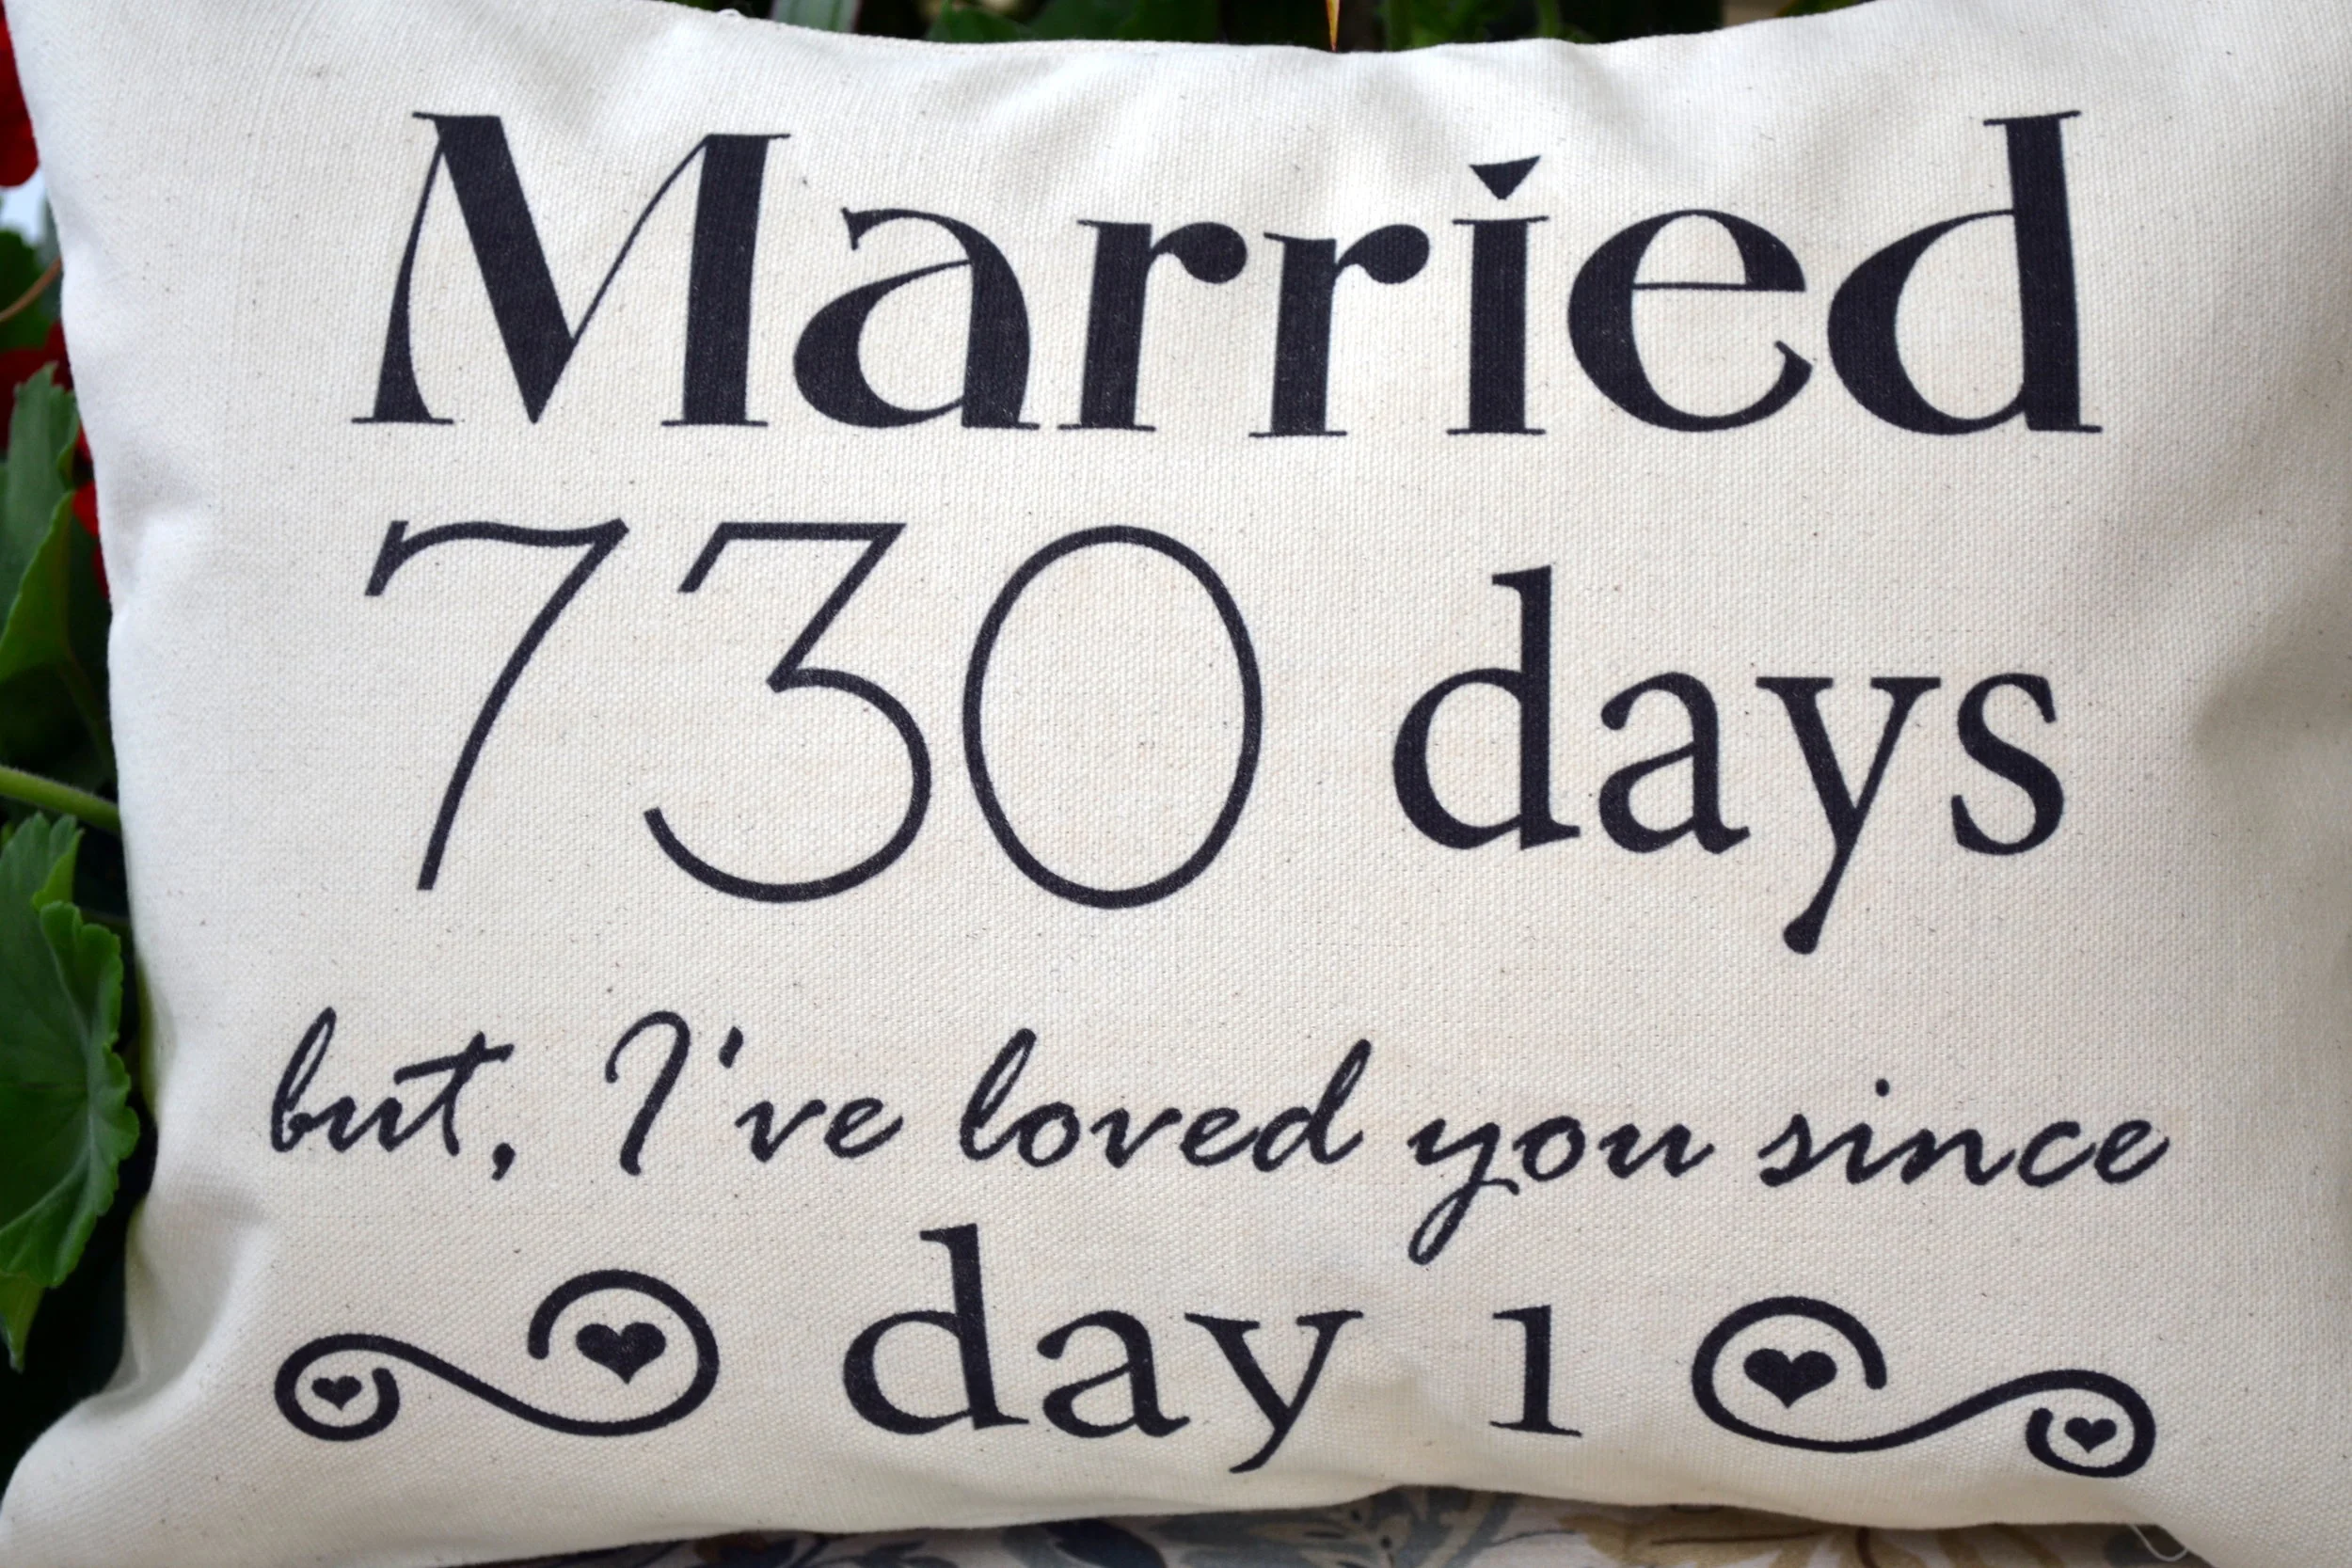 Married
730 days
but, I've loved you since
day 1